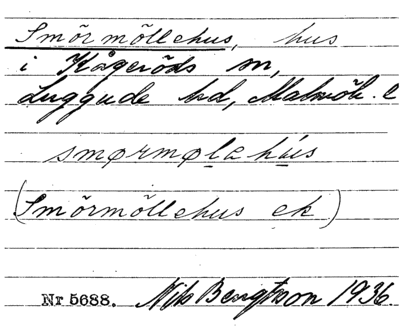 Smörmöllehus, hus
i Kågeröds sn,
Luggude hd, Malmöh. l
smørmøla hús
(Smörmöllehus ek)
Nr 5688. Nils Bengtsson 1936.